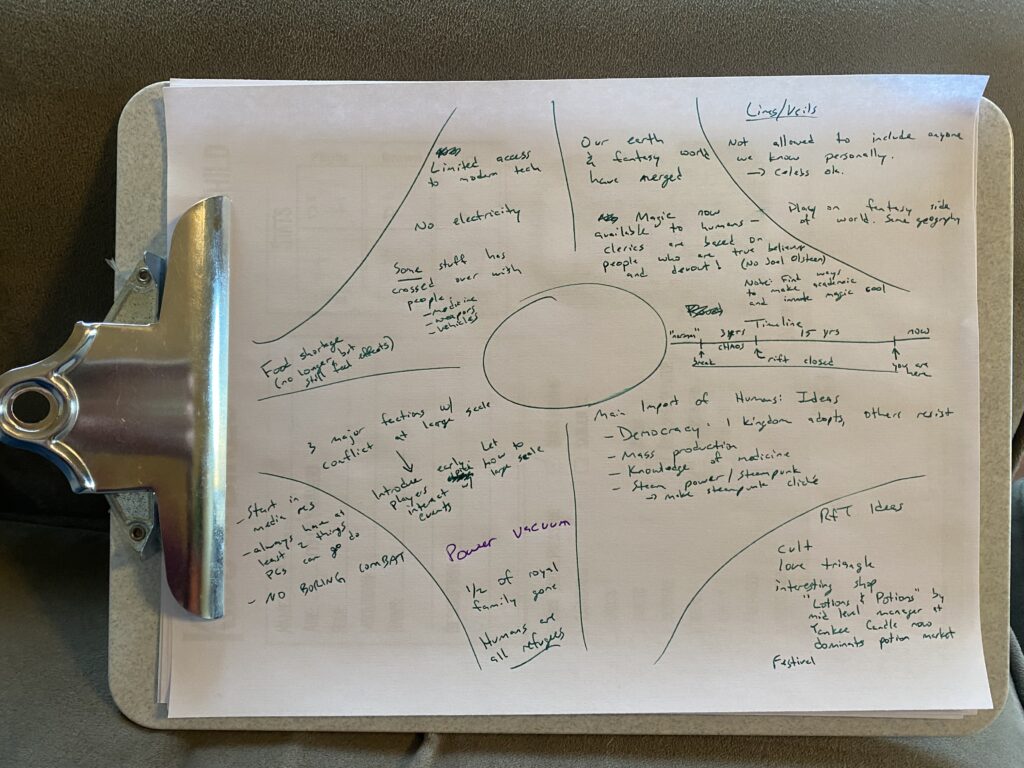 Limited access
to modern tech
No electricity
Some stuff has
crossed over with
people
- medicine
- weapons
- vehicles
Food shortage
(no longer but
still feel effects)
Our earth
& fantasy world
have merged
Magic now
available to humans -
clerics are based on
people who are true believers
and devout! (No Joel Olsteen)
Lines/Veils
Not allowed to include anyone
we know personally.
→ celebs ok.
- Play on fantasy side
of world. Same geography
Note: Find ways
to make academic
and innate magic cool
Timeline
"normal"
3 yrs
15 yrs
now
CHAOS
break
rift closed
you are
here
3 major factions w/ scale
conflict at large
Introduce early. Let
players how to
interact w/ large scale
events
Power vacuum
1/2 of royal
family gone
Humans are
all refugees
- Start in
media res
- always have at
least 2 things
PCs can go do
- NO BORING COMBAT
Main Import of Humans: Ideas
- Democracy. 1 kingdom adopts, others resist
- Mass production
- Knowledge of medicine
- Steam power/steampunk
→ make steampunk cliché
RfT Ideas
cult
love triangle
interesting shop
"Lotions & Potions" by
mid level manager at
Yankee Candle now
dominates potion market
Festival